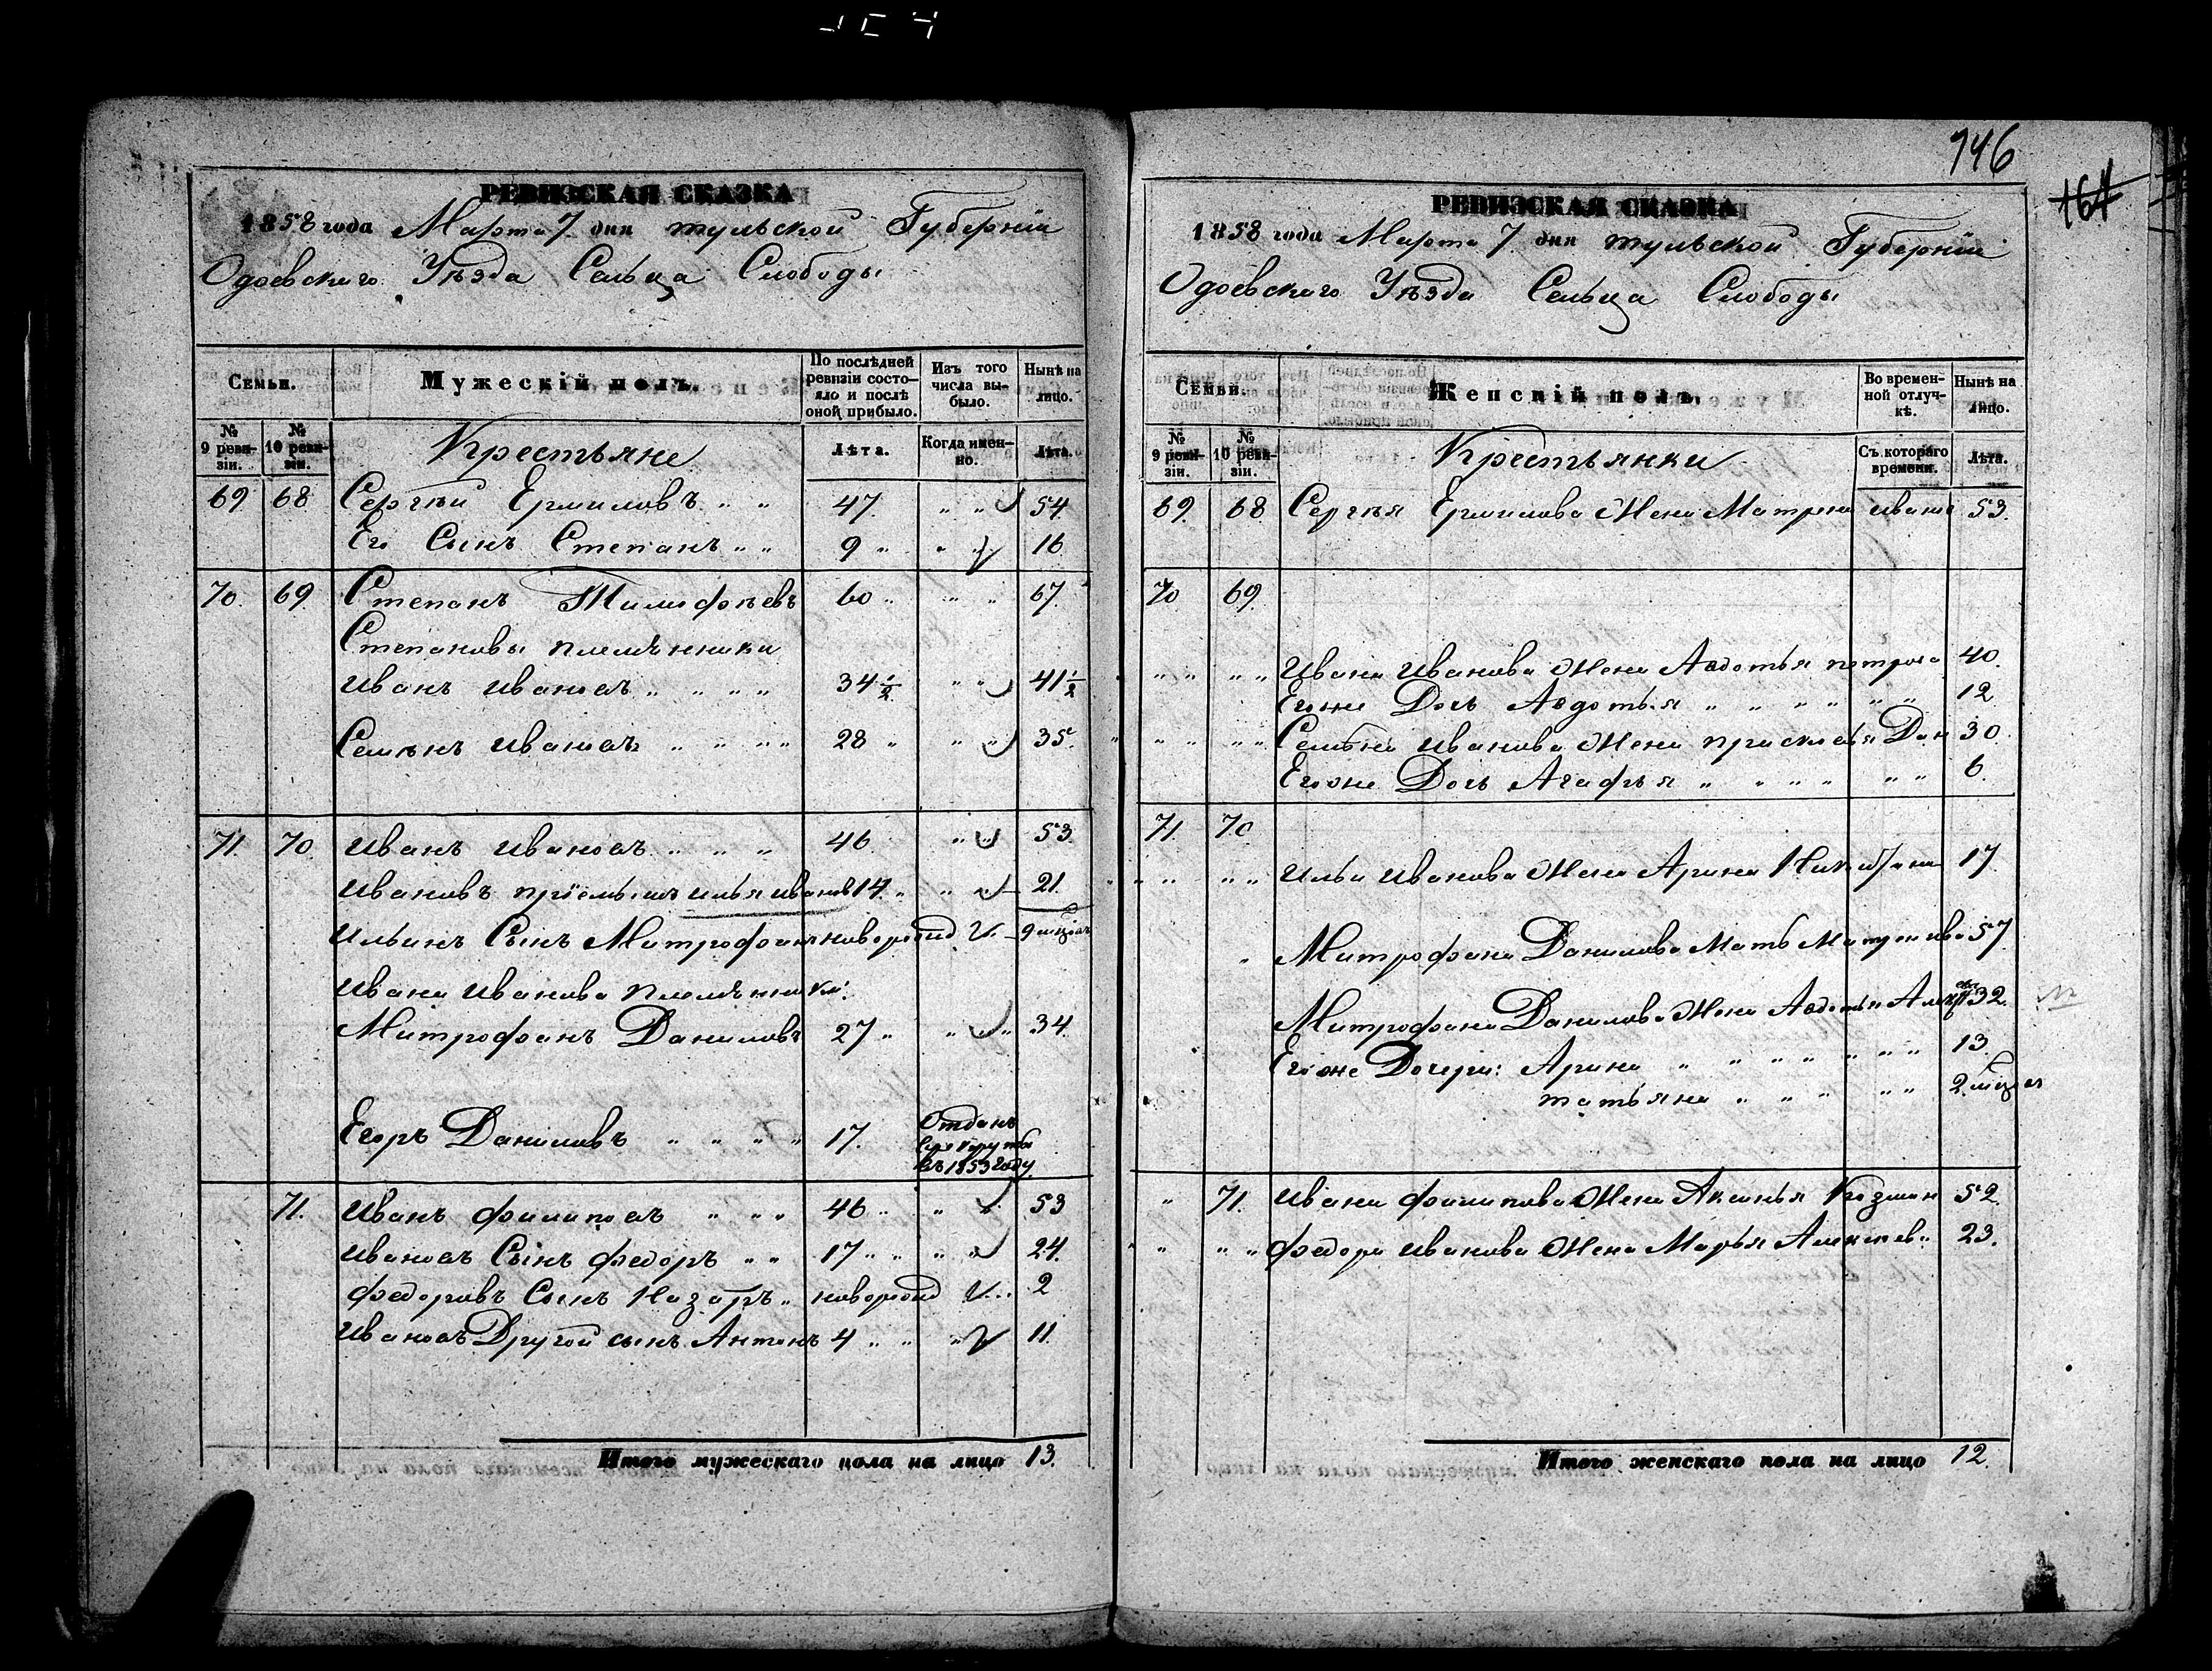 146
164
РЕВИЗСКАЯ СКАЗКА
1858 года Марта 7 дня тульской Губерніи
Одоевскаго Уѣзда Сельца Слободы
Семьи.
Мужескій полъ.
По послѣдней ревизіи состояло и послѣ оной прибыло.
Изъ того числа выбыло.
Нынѣ на лицо.
№ 9 ревизіи.
№ 10 ревизіи.
Крестьяне
Лѣта.
Когда именно.
Лѣта.
69 68 Сергѣй Ермиловъ " " 47. " " 54
Его Сынъ Степанъ " " 9 " " " 16
70. 69. Степанъ Тимофѣевъ 60 " " " 67.
Степановы племянники
Иванъ Ивановъ " " " " 34½ " " 41½
Семѣнъ Ивановъ " " " " 28 " " " 35.
71. 70. Иванъ Ивановъ " " " 46 " " 53.
Ивановъ пріемышъ Илья Иванов 14. " " " 21.
Ильинъ Сынъ Митрофанъ новорожд 9 мѣсяц
Ивана Иванова племянники:
Митрофанъ Даниловъ 27 " " " 34.
Егоръ Даниловъ " " " " 17. Отданъ
въ рекруты
въ 1853 году
71. Иванъ Филиповъ " " " 46 " " " 53
Ивановъ Сынъ Федоръ " " 17 " " " " 24.
Федоровъ Сынъ Назаръ " новорожд 2
Ивановъ Другой сынъ Антонъ 4 " " " 11.
Итого мужескаго пола на лицо 13.
РЕВИЗСКАЯ СКАЗКА
1858 года Марта 7 дня тульской Губерніи
Одоевскаго Уѣзда Сельца Слободы
Семьи.
Женскій полъ.
Во временной отлучкѣ.
Нынѣ на лицо.
№ 9 ревизіи.
№ 10 ревизіи.
Крестьянки
Съ котораго времени.
Лѣта.
69. 68 Сергѣя Ермилова Жена Матрена Иванов 53.
70 69.
" " " " Ивана Иванова Жена Авдотья петрова 40.
Егоже Дочь Авдотья " " " " " " 12
" " " " Семѣна Иванова Жена прасковья Дан 30.
Егоже Дочь Агафья " " " " " " 6.
71. 70
" " " " Ильи Иванова Жена Арина 17.
" Митрофана Данилова Мать 57.
Митрофана Данилова Жена Авдотья 32.
Егоже Дочери: Арина " " " " " " " 13.
татьяна " " " " " " 2 мѣсяц
" 71. Ивана Филипова Жена Аксинья Козмин 52.
" " " Федора Иванова Жена Марья Алексѣев. 23.
Итого женскаго пола на лицо 12.